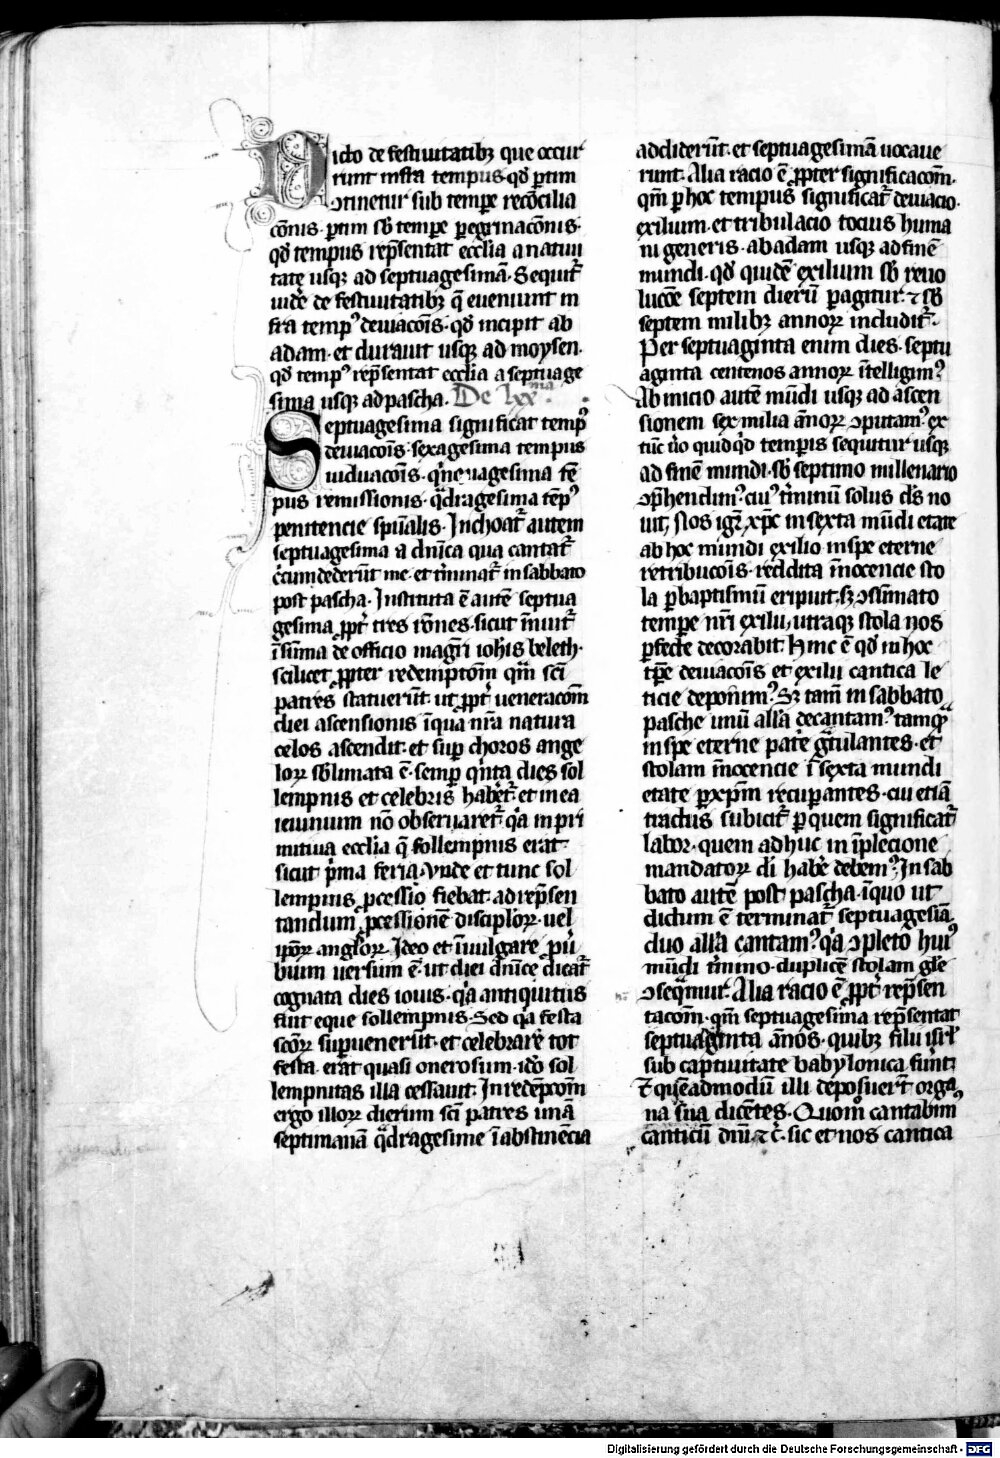 Dicto de festiuitatibȝ que occur
runt infra tempus qd̓ ꝑtim
ↄtinetur sub tempe recōcilia
cōnis ꝑtim sb̓ tempe ꝑegrinacōnis
qd̓ tempus rep̄sentat eccl̓ia a natiui
tate usqȝ ad septuagesimā. Sequit̄
uide̓ de festiuitatibȝ q̄ eueniunt in
fra temp᷒ deuiacōis. qd̓ incipit ab
adam. et durauit usqȝ ad moysen.
qd̓ temp᷒ rep̄sentat eccl̓ia a septuage
sima usqȝ ad pascha. De lxxᵐᵃ.
Septuagesima significat temp᷒
deuiacōis. sexagesima tempus
uiduacōis. qͥnquagesima tē
pus remissionis. qͣdragesima tēp᷒
penitencie spūalis. Inchoat̄ autem
septuagesima a dn̄ica qua cantat̄
Cͥcumdederūt me. et tͥminat̄ in sabbato
post pascha. Instituta ē autē septua
gesima ꝓpt̓ tres rōnes. sicut īnuit̄
ī sūma de officio magr̄i ioh̓is beleth.
scilicet ꝓpter redemptōm̄ qm̄ sc̄i
patres statuerūt. ut ꝓpt̓ ueneracōm̄
diei ascensionis ī qua nr̄a natura
celos ascendit. et suꝑ choros ange
loꝝ sb̓limata ē. semꝑ qͥnta dies sol
lempnis et celebris haber̄et̄. et in ea
ieiunium nō obseruaret̄. qͣ in pri
mitiua eccl̓ia q̄ sollempnis erat
sicut pͥma feria. Vnde et tunc sol
lempnis ꝓcessio fiebat. ad rep̄sen
tandum ꝓcessionē discipl̓oꝝ. uel
ip̄oꝝ angl̓oꝝ. Ideo et ī uulgare ꝓu̓
bium uersum ē. ut diei dn̄ice dicat̄
cognata dies iouis. qͣ antiquitus
fiut eque sollempnis. Sed qͣ festa
sc̄oꝝ suꝑuenerūt. et celebrare̓ tot
festa. erat quasi onerosum. id̓o sol
lempnitas illa cessauit. In redēpcōm̄
ergo illoꝝ dierum sc̄i patres unā
septimanā qͣdragesime ī abstinēcia
addiderūt. et septuagesimā uocaue
runt. Alia racio ē ꝓpter significacōm̄.
qm̄ ꝑ hoc tempus significat̄ deuiacio.
exilium. et tribulacio tocius huma
ni generis. ab adam usqȝ ad finē
mundi. qd̓ quidē exilium sb̓ reuo
lucōe septem dierū ꝑagitur. ⁊ sb̓
septem milibȝ annoꝝ includit̄.
Per septuaginta enim dies. septu
aginta centenos annoꝝ ītelligim᷒
Ab inicio autē mūdi usqȝ ad ascen
sionem sex milia ānoꝝ ↄputam᷒. ex
tūc u̓o quidqͥd temꝑis sequitur usqȝ
ad finē mundi. sb̓ septimo millenario
ↄp̄hendim᷒. cui᷒ tͥminū solus ds̄ no
uit. Nos igͥ xp̄c in sexta mūdi etate
ab hoc mundi exilio in spe eterne
retribucōis. reddita īnocencie sto
la ꝑ baptismū eripuit. sȝ ↄsūmato
tempe nr̄i exilii. utraqȝ stola nos
ꝑfecte decorabit. Hinc ē qd̓ in hoc
tp̄e deuiacōis et exilii cantica le
ticie deponim᷒. Sȝ tam̄ in sabbato
pasche unū all̓a decantam᷒. tamqͣ
in spe eterne patͥe gͣtulantes. et
stolam īnocencie ī sexta mundi
etate ꝑ xp̄m recuꝑantes. cui etiā
tractus subicit̄ ꝑ quem significat̄
labor. quem adhuc in īplecione
mandatoꝝ di̓ habe̓ debem᷒. In sab
bato autē post pascha. ī quo ut
dictum ē terminat̄ septuagesīa
duo all̓a cantam᷒. qͣ ↄpleto hui᷒
mūdi tͥmino. duplicē stolam gl̓e
ↄseqͥmur. Alia racio ē ꝓpt̓ rep̄sen
tacōm̄. qm̄ septuagesima rep̄sentat
septuaginta ānos. quibȝ filii isr̄l
sub captiuitate babylonica fūnt.
Et quēadmodū illi deposuer̄t orga
na sua dicētes. Quom̊ cantabim᷒
canticū dn̄i ⁊ c̓. sic et nos cantica
Digitalisierung gefördert durch die Deutsche Forschungsgemeinschaft - DFG